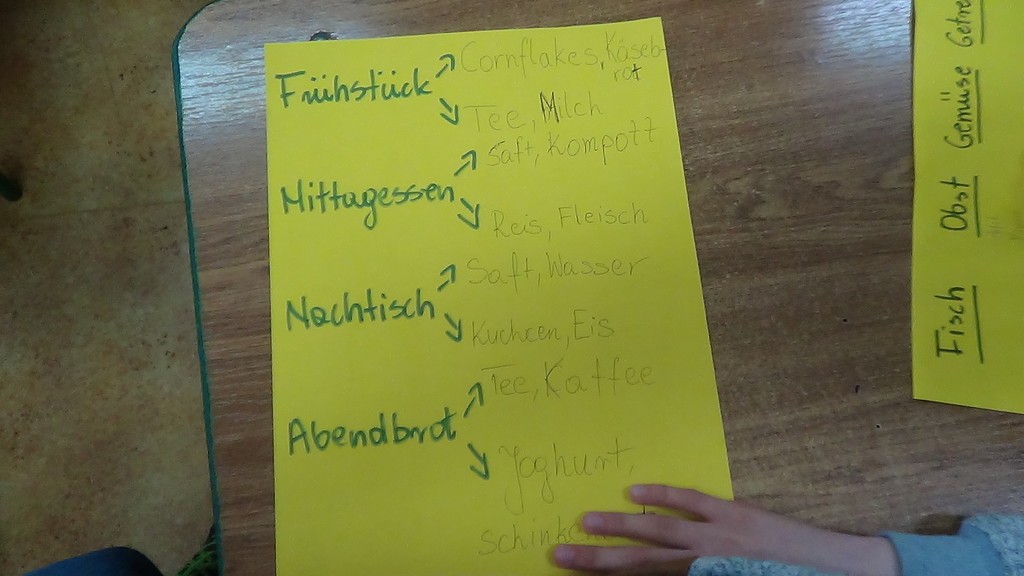 Frühstück
Cornflakes, Käseb-
rot
Tee, Milch
Mittagessen
Saft, Kompott
Reis, Fleisch
Nachtisch
Saft, Wasser
Kuchen, Eis
Abendbrot
Tee, Kaffee
Joghurt,
Fisch
Obst
Gemüse